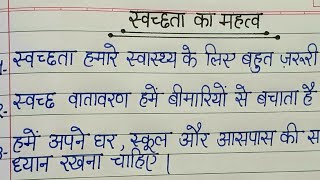 स्वच्छता का महत्व
स्वच्छता हमारे स्वास्थ्य के लिए बहुत ज़रूरी
स्वच्छ वातावरण हमें बीमारियों से बचाता है
हमें अपने घर, स्कूल और आसपास की
ध्यान रखना चाहिए।